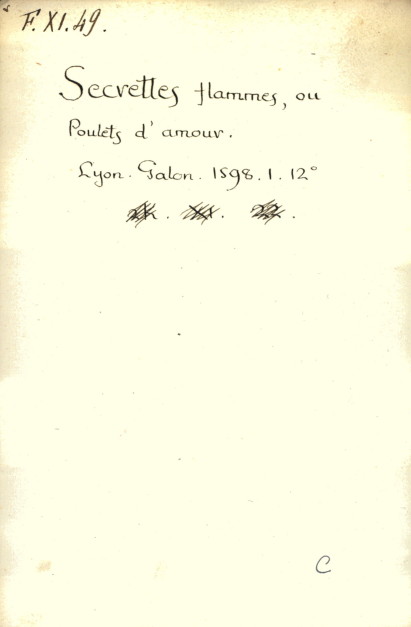 F. XI. 49.
Secrettes flammes, ou
Poulets d'amour.
Lyon. Galon. 1598. 1. 12°
C